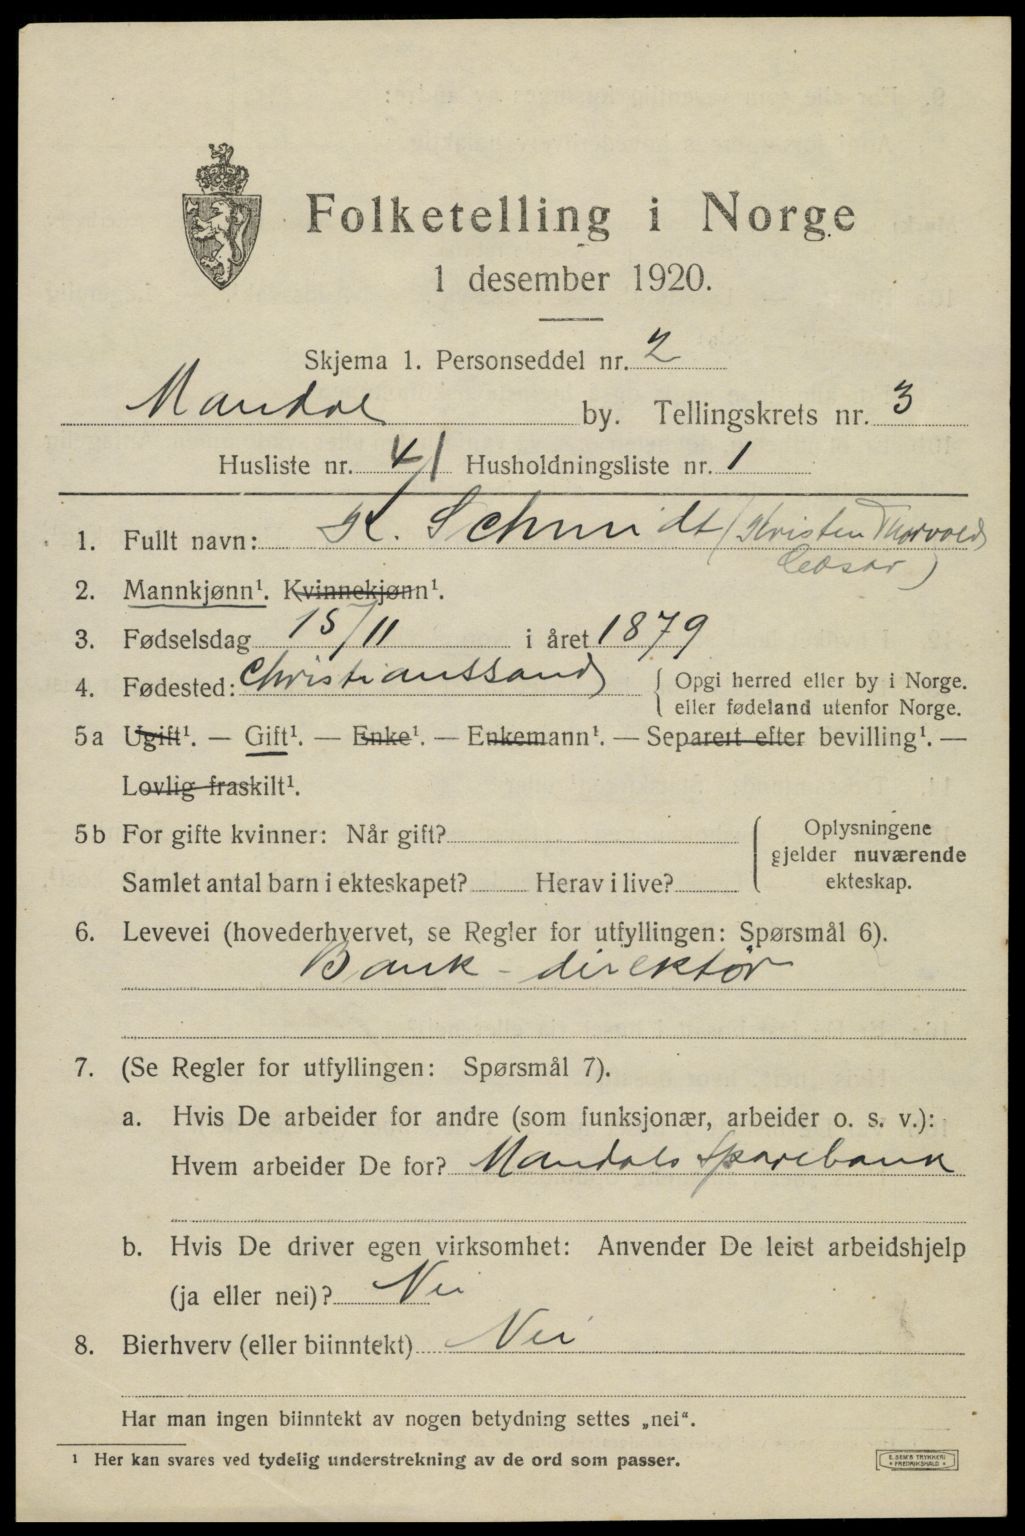 Folketelling i Norge
1 desember 1920.
Skjema 1. Personseddel nr. 2
Mandal by. Tellingskrets nr. 3
Husliste nr. 41 Husholdningsliste nr. 1
1. Fullt navn: K. Schmidt (Kristen Thorvald
Ceasar)
2. Mannkjønn¹. Kvinnekjønn¹.
3. Fødselsdag 15/11 i året 1879
4. Fødested: Christianssand { Opgi herred eller by i Norge.
eller fødeland utenfor Norge.
5a Ugift¹. — Gift¹. — Enke¹. — Enkemann¹. — Separert efter bevilling¹. —
Lovlig fraskilt¹.
5b For gifte kvinner: Når gift? { Oplysningene
gjelder nuværende
Samlet antal barn i ekteskapet? Herav i live? ekteskap.
6. Levevei (hovederhvervet, se Regler for utfyllingen: Spørsmål 6).
Bank-direktør
7. (Se Regler for utfyllingen: Spørsmål 7).
a. Hvis De arbeider for andre (som funksjonær, arbeider o. s. v.):
Hvem arbeider De for? Mandals Sparebank
b. Hvis De driver egen virksomhet: Anvender De leiet arbeidshjelp
(ja eller nei)? Nei
8. Bierhverv (eller biinntekt) Nei
Har man ingen biinntekt av nogen betydning settes „nei“.
¹ Her kan svares ved tydelig understrekning av de ord som passer.
E. SEM'S TRYKKERI
FREDRIKSHALD